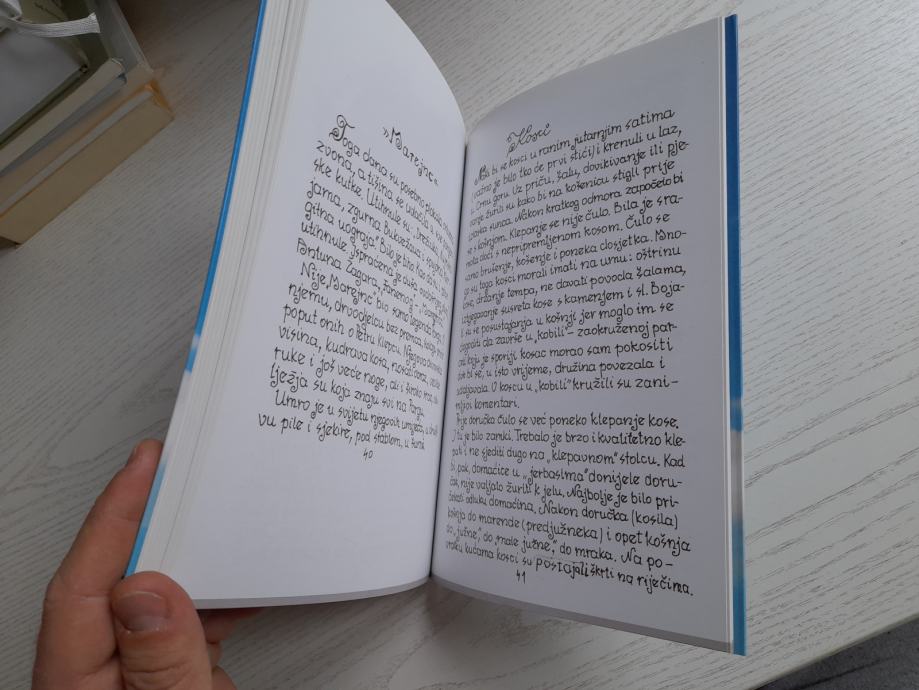 „Marejnc“
Toga dana su posebno plakala
zvona, a tišina se uvukla u sve
ske kutke. Utihnule su
jama, zgurna Bukvežana i
gitna uograja". Bulo je tiho kao da su i
utihnule. Ispraćena je duša
Antuna Zagara, „Marejnca"
Nije „Marejnc" bio samo legenda
njemu, drvodjelcu bez premca,
poput onih o Petru Klepcu. Njegova
visina, kudrava kosa, nosati
ruke i još veće noge, ali i široko srce,
lježja su koja znaju svi na Pargu.
Umro je u svijetu njegovih umijeća, u
vu pile i sjekire, pod stablom, u šumi.
40
Kosci
bi se kosci u ranim jutarnjim satima
važno je bilo tko će prvi stići) i krenuli u laz,
u Crnu goru. Uz priču, šalu, dovikivanje ili pje-
vanje žurili su kako bi na košenicu stigli prije
izlaska sunca. Nakon kratkog odmora započelo bi
se s košnjom. Klepanje se nije čulo. Bila je sra-
mota doći s nepripremljenom kosom. Čulo se
samo brušenje, košenje i poneka dosjetka. Mno-
go su toga kosci morali imati na umu: oštrinu
kose, držanje tempa, ne davati povoda šalama,
izbjegavanje susreta kose s kamenjem i sl. Boja-
li su se postustajanja u košnji jer moglo im se
dogoditi da završe u „kobili"– zaokruženoj par-
celi koju je sporiji kosac morao sam pokositi
dok bi se, u isto vrijeme, družina povezala i
udaljavala. O koscu u „kobili" kružili su zani-
mljivi komentari.
Prije doručka čulo se već poneko klepanje kose.
I tu je bilo zamki. Trebalo je brzo i kvalitetno kle-
pati i ne sjediti dugo na „klepavnom" stolcu. Kad
bi, pak, domaćice u „jerbasima" donijele doru-
čak, nije valjalo žuriti k jelu. Najbolje je bilo pri-
čekati odluku domaćina. Nakon doručka (kosila)
košnja do marende (predjužneka) i opet košnja
do „južne", do „male južne", do mraka. Na po-
vratku kućama kosci su postajali škrti na riječima.
41